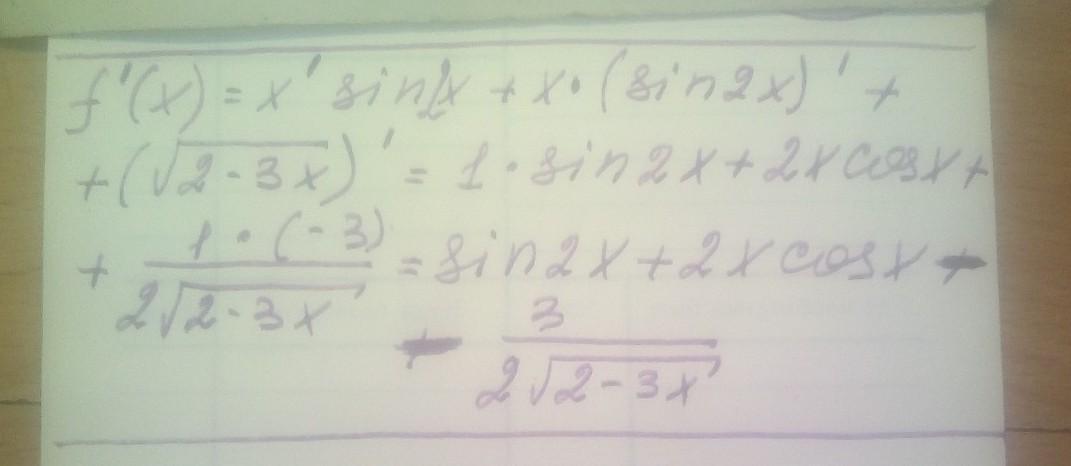 f'(x) = x' sin2x + x·(sin2x)' +
+ (√(2-3x))' = 1·sin2x + 2x cosx +
+ (1·(-3))/(2√(2-3x)) = sin2x + 2x cosx -
- 3/(2√(2-3x))